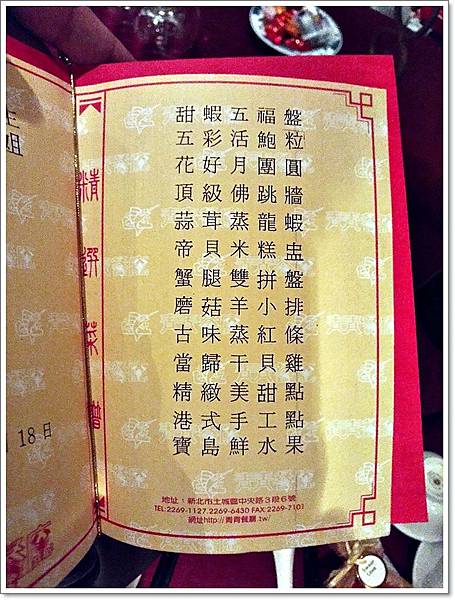 姐
18日
精選菜譜
甜蝦五福盤
五彩活鮑粒
花好月團圓
頂級佛跳牆
蒜茸蒸龍蝦
帝貝米糕盅
蟹腿雙拼盤
磨菇羊小排
古味蒸紅條
當歸干貝雞
精緻美甜點
港式手工點
寶島鮮水果
地址：新北市土城區中央路3段6號
TEL:2269-1127.2269-6430 FAX:2269-7103
網址http://青青餐廳.tw/